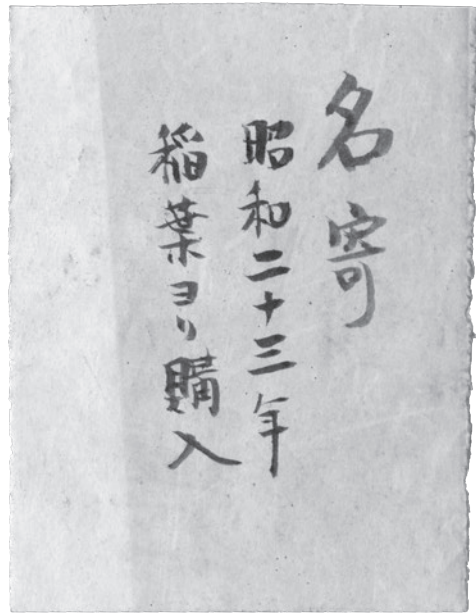 名寄
昭和二十三年
稲葉ヨリ購入